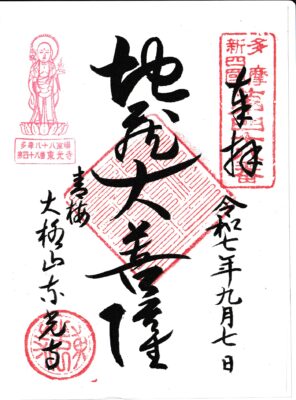 奉拝
令和七年九月七日
地蔵大菩薩
青梅
大柳山東光寺
多摩八十八霊場
第四十八番東光寺
多摩
新四国